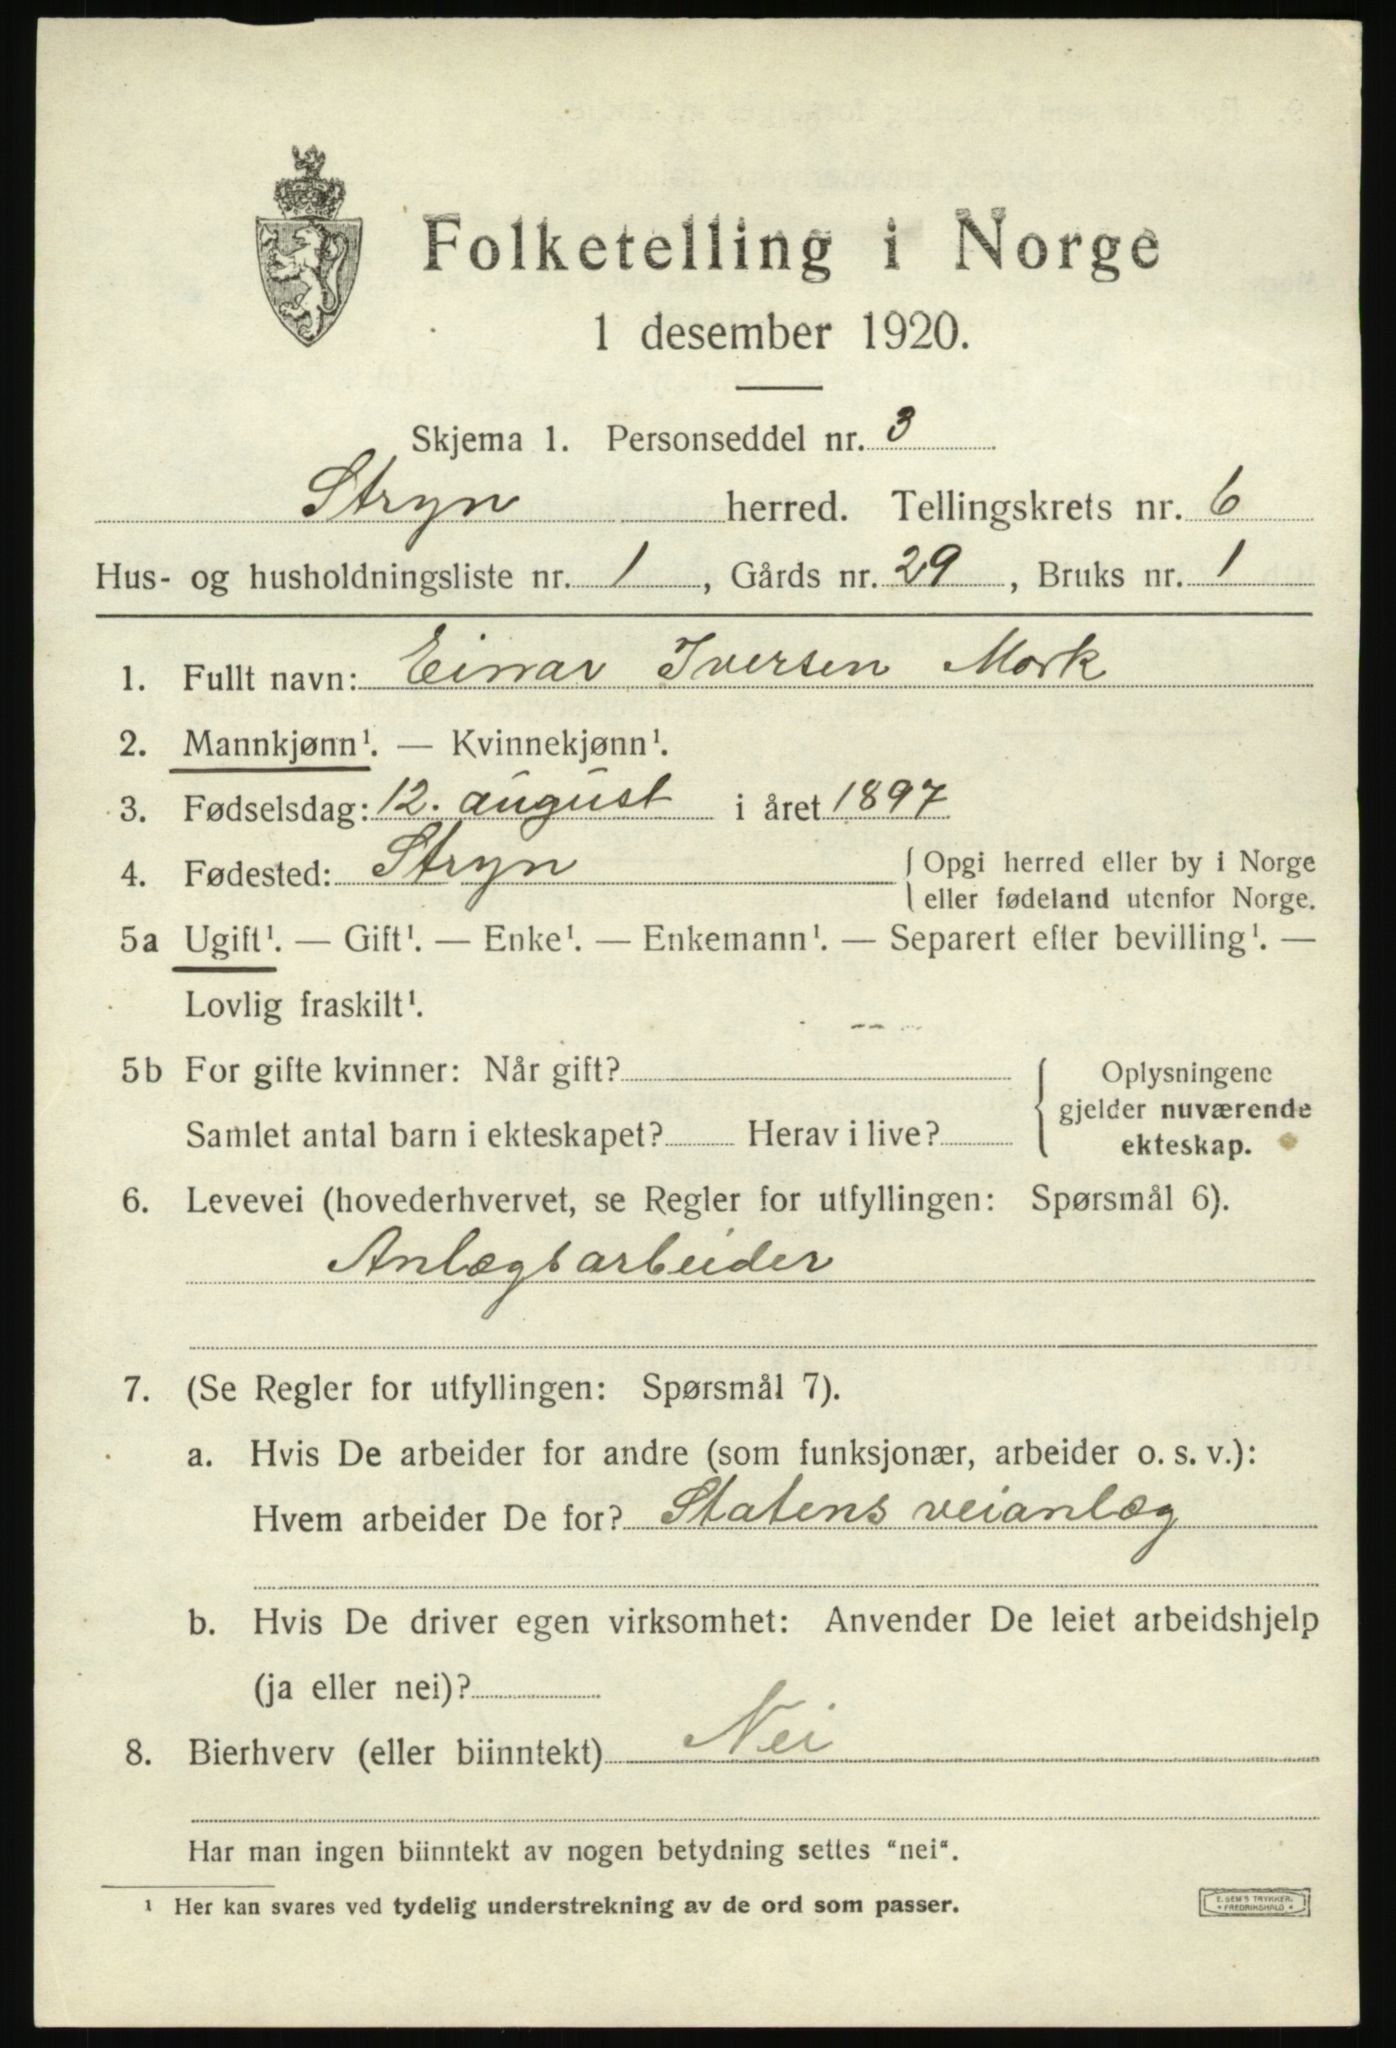 Folketelling i Norge
1 desember 1920.
Skjema 1. Personseddel nr. 3
Stryn herred. Tellingskrets nr. 6
Hus- og husholdningsliste nr. 1, Gårds nr. 29, Bruks nr. 1
1. Fullt navn: Einar Iversen Mork
2. Mannkjønn¹. — Kvinnekjønn¹.
3. Fødselsdag: 12. august i året 1897
4. Fødested: Stryn { Opgi herred eller by i Norge
eller fødeland utenfor Norge.
5a Ugift¹. — Gift¹. — Enke¹. — Enkemann¹. — Separert efter bevilling¹. —
Lovlig fraskilt¹.
5b For gifte kvinner: Når gift?
Samlet antal barn i ekteskapet? Herav i live?
Oplysningene
gjelder nuværende
ekteskap.
6. Levevei (hovederhvervet, se Regler for utfyllingen: Spørsmål 6).
Anlægsarbeider
7. (Se Regler for utfyllingen: Spørsmål 7).
a. Hvis De arbeider for andre (som funksjonær, arbeider o. s. v.):
Hvem arbeider De for? Statens veianlæg
b. Hvis De driver egen virksomhet: Anvender De leiet arbeidshjelp
(ja eller nei)?
8. Bierhverv (eller biinntekt) Nei
Har man ingen biinntekt av nogen betydning settes "nei".
¹ Her kan svares ved tydelig understrekning av de ord som passer.
E. SEM'S TRYKKERI
FREDRIKSHALD